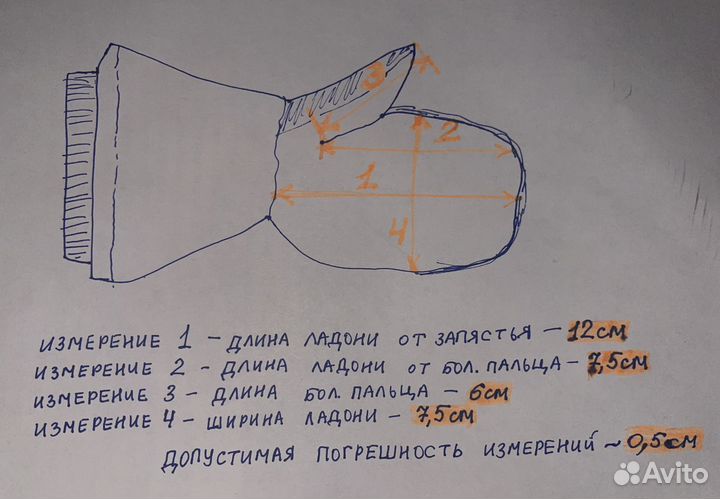 3
2
1
4
ИЗМЕРЕНИЕ 1 - ДЛИНА ЛАДОНИ ОТ ЗАПЯСТЬЯ - 12см
ИЗМЕРЕНИЕ 2 - ДЛИНА ЛАДОНИ ОТ БОЛ. ПАЛЬЦА - 7,5см
ИЗМЕРЕНИЕ 3 - ДЛИНА БОЛ. ПАЛЬЦА - 6см
ИЗМЕРЕНИЕ 4 - ШИРИНА ЛАДОНИ - 7,5см
ДОПУСТИМАЯ ПОГРЕШНОСТЬ ИЗМЕРЕНИЙ ~ 0,5см
Avito